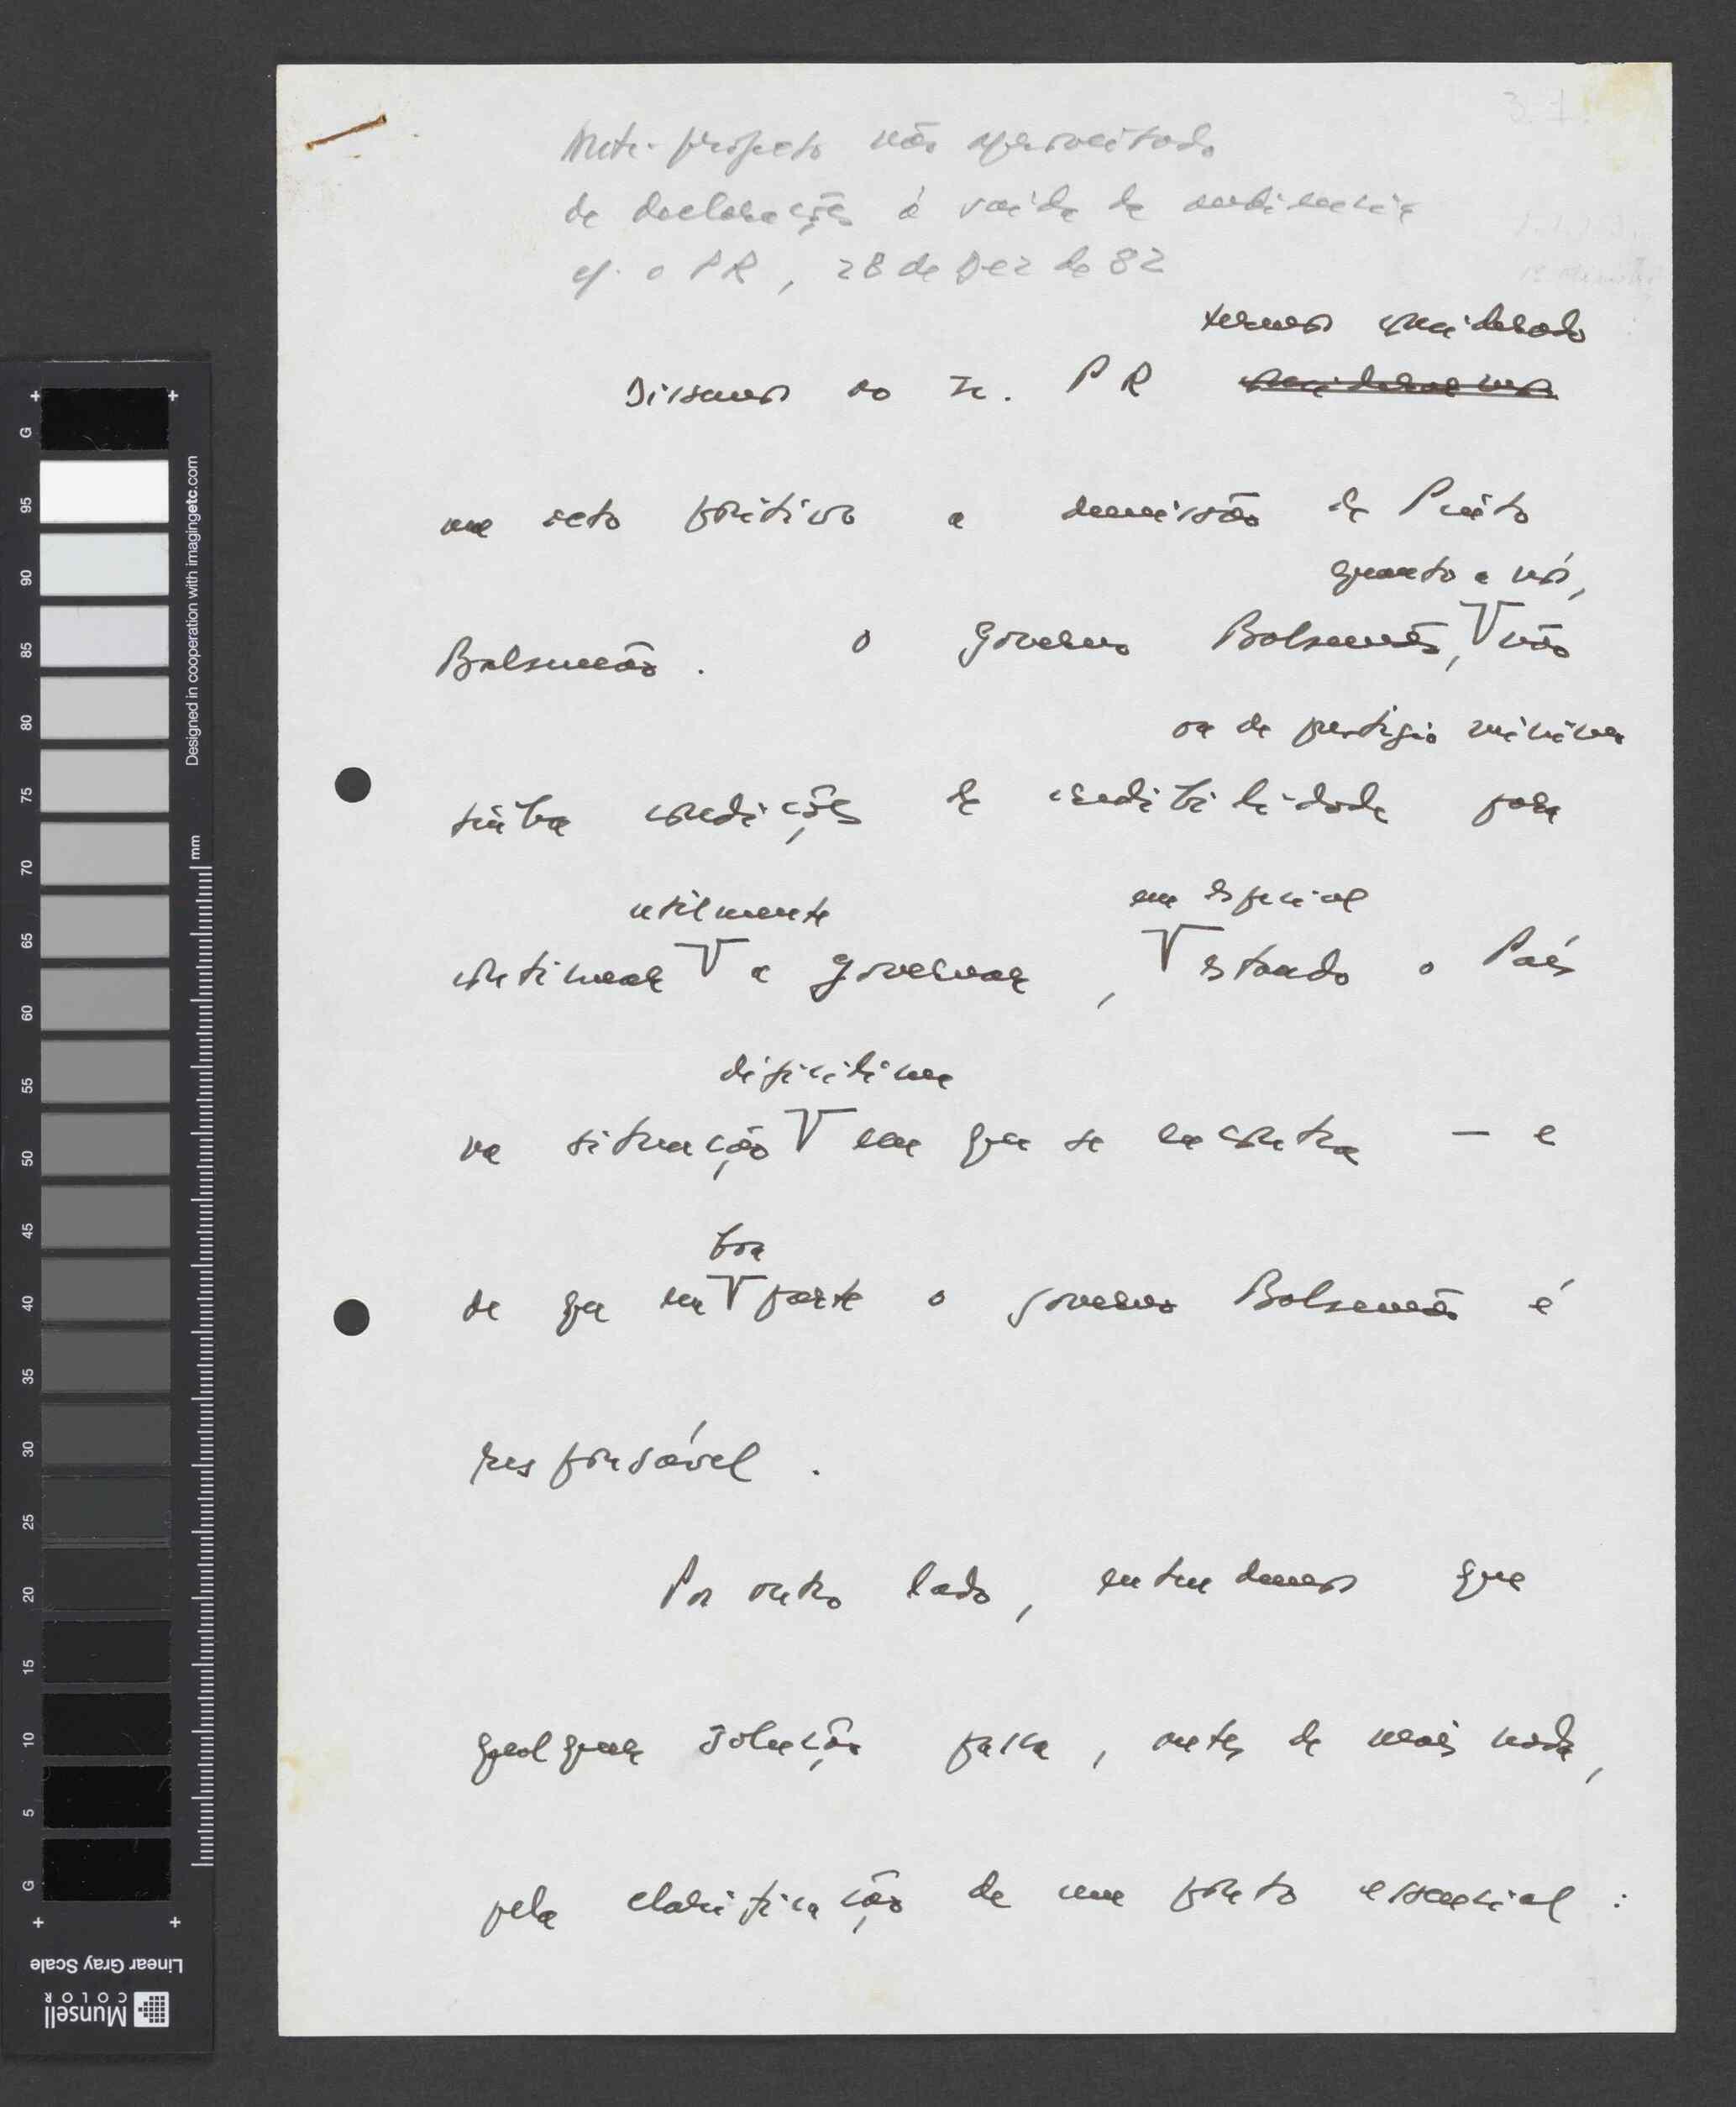 Ante-projecto não aproveitado
de declarações à saída da audiência
c/ o PR, 28 de Dez de 82
termos considerado
Dissemos ao Sr. PR consideramos
um acto positivo a demissão de Pinto
quanto a nós,
Balsemão. O Governo Balsemão, não
ou de prestígio mínimas
tinha condições de credibilidade para
utilmente em especial
continuar a governar, estando o País
dificílima
na situação em que se encontra — e
boa
de que em parte o governo Balsemão é
responsável.
Por outro lado, entendemos que
qualquer solução passa, antes de mais nada,
pela clarificação de um ponto essencial:
G
95
90
85
80
75
70
65
60
55
50
45
40
35
30
25
20
15
10
5
G
mm
Designed in cooperation with imagingetc.com
Linear Gray Scale
Munsell
COLOR